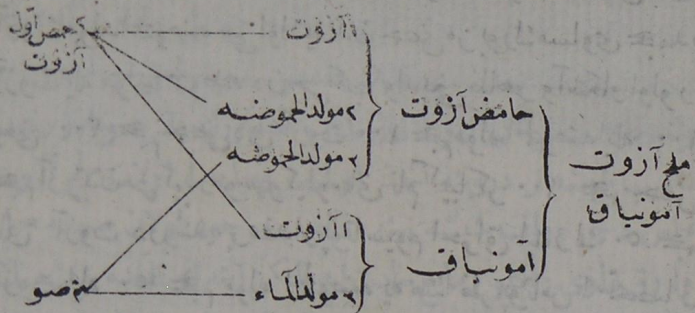 ملح آزوت
آمونیاق
حامض آزوت
آمونیاق
۱ آزوت
۲ مولدالحموضه
۳ مولدالحموضه
۱ آزوت
۳ مولدالماء
حمض اول
آزوت
صو